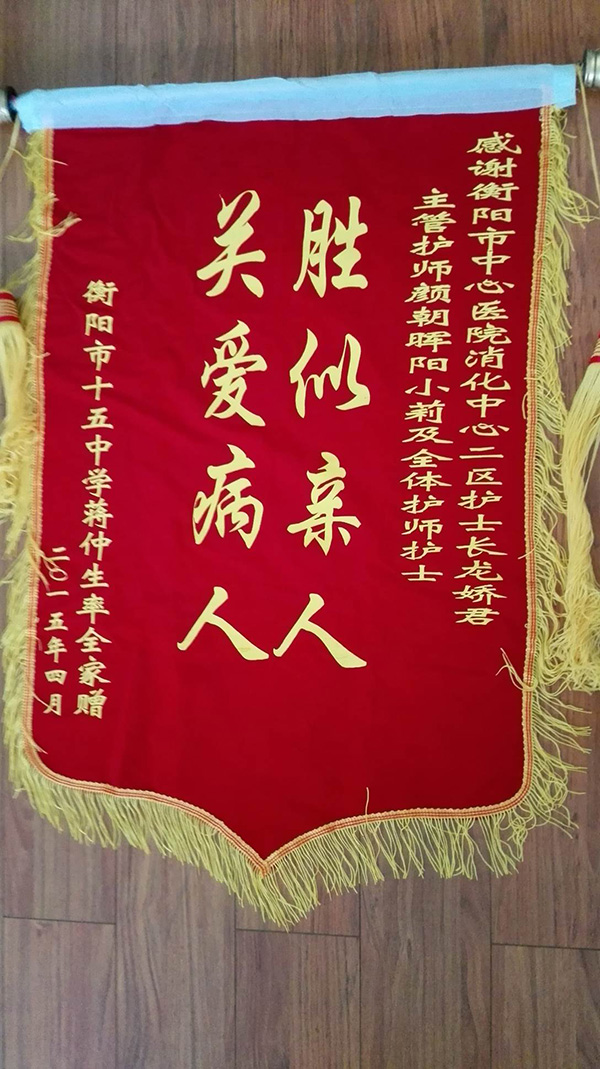 感谢衡阳市中心医院消化中心二区护士长龙娇君
主管护师颜朝晖阳小莉及全体护师护士
胜似亲人
关爱病人
衡阳市十五中学蒋仲生率全家赠
二〇一五年四月